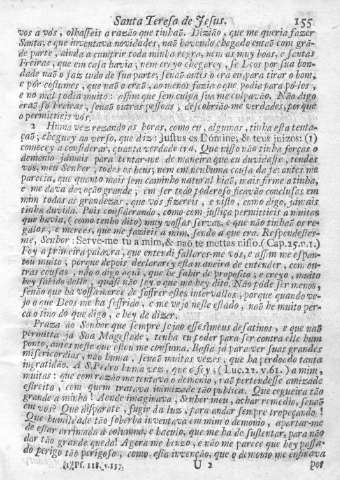 Santa Teresa de Jesus. 155
vos a vós, olhasseis a razaõ que tinhaõ. Diziaõ, que me queria fazer
Santa, e que inventava novidades, naõ havendo chegado entaõ com grã-
de parte, ainda a cumprir toda minha regra, nem as muy boas, e santas
Freiras, que em casa havia; nem creyo chegarey, se Deos por sua bon-
dade naõ o faz tudo de sua parte, senaõ antes o era eu para tirar o bom,
e pôr costumes, que naõ o eraõ, ao menos fazia o que podia para pô-los,
e no mal podia muito: assim que sem culpa sua me culpavaõ. Naõ digo
eraõ só freiras, senaõ outras pessoas, descobriaõ-me verdades, porque
o permittieis vós.
2 Huma vez rezando as horas, como eu, algumas, tinha esta tenta-
çaõ, cheguey ao verso, que diz: justus es Domine, & tuus juizos: (1)
comecey a considerar, quanta verdade era. Que nisto naõ tinha forças o
demonio jámais para tentar-me de maneira que eu duvidasse, tendes
vós, meu Senhor, todos os bens, nem em nenhuma cousa da fé, antes me
parecia, que quanto mais sem caminho natural hiaõ, mais firme a tinha,
e me dava devaçaõ grande: em ser todo poderoso ficavaõ conclusas em
mim todas as grandezas, que vós fizereis, e nisto, como digo, jámais
tinha duvida. Pois considerando, como com justiça permittieis a muitas
que havia, (como tenho dito) muy vossas servas, e que naõ tinhaõ os re-
galos, e merces, que me fazieis a mim, sendo a que era. Respondestes-
me, Senhor: Serve-me tu a mim, & naõ te mettas nisso. (Cap. 25. n. 1.)
Foy a primeira palavra, que entendi fallares-me vós, e assim me espan-
tou muito, porque depois declararey esta maneira de entender, com ou-
tras cousas, naõ o digo aqui, que he sahir de proposito, e creyo, muito
hey sahido delle, quasi naõ sey o que me hey dito. Naõ póde ser menos,
senaõ que ha vossa mercê de soffrer estes intervallos, porque quando ve-
jo o que Deos me ha soffrido, e me vejo neste estado, naõ he muito per-
ca o tino do que digo, e hey de dizer.
Praza ao Senhor que sempre sejaõ esses meus desatinos, e que naõ
permitta já Sua Magestade, tenha eu poder para ser contra elle hum
ponto, antes neste em que estou me consuma. Basta já para ver suas grandes
misericordias, naõ huma, senaõ muitas vezes, que ha perdoado tanta
ingratidaõ. A S. Pedro huma vez, que o foy, (Luc. 22. v. 61.) a mim
muitas: que com razaõ me tentava o demonio, naõ pertendesse amizade
estreita, com quem tratava inimizade taõ publica. Que cegueira taõ
grande a minha! Aonde imaginava, Senhor meu, achar remedio, senaõ
em vós? Que disparate, fugir da luz, para andar sempre tropeçando!
Que humildade taõ soberba inventava em mim o demonio, apartar-me
de estar arrimada á columna, e baculo, que me ha de sustentar, para naõ
dar taõ grande queda! Agora me benzo, e naõ me parece que hey passa-
do perigo taõ perigoso, como esta invençaõ, que o demonio me ensinava
(1) Ps. 118. v. 137. U 2 por